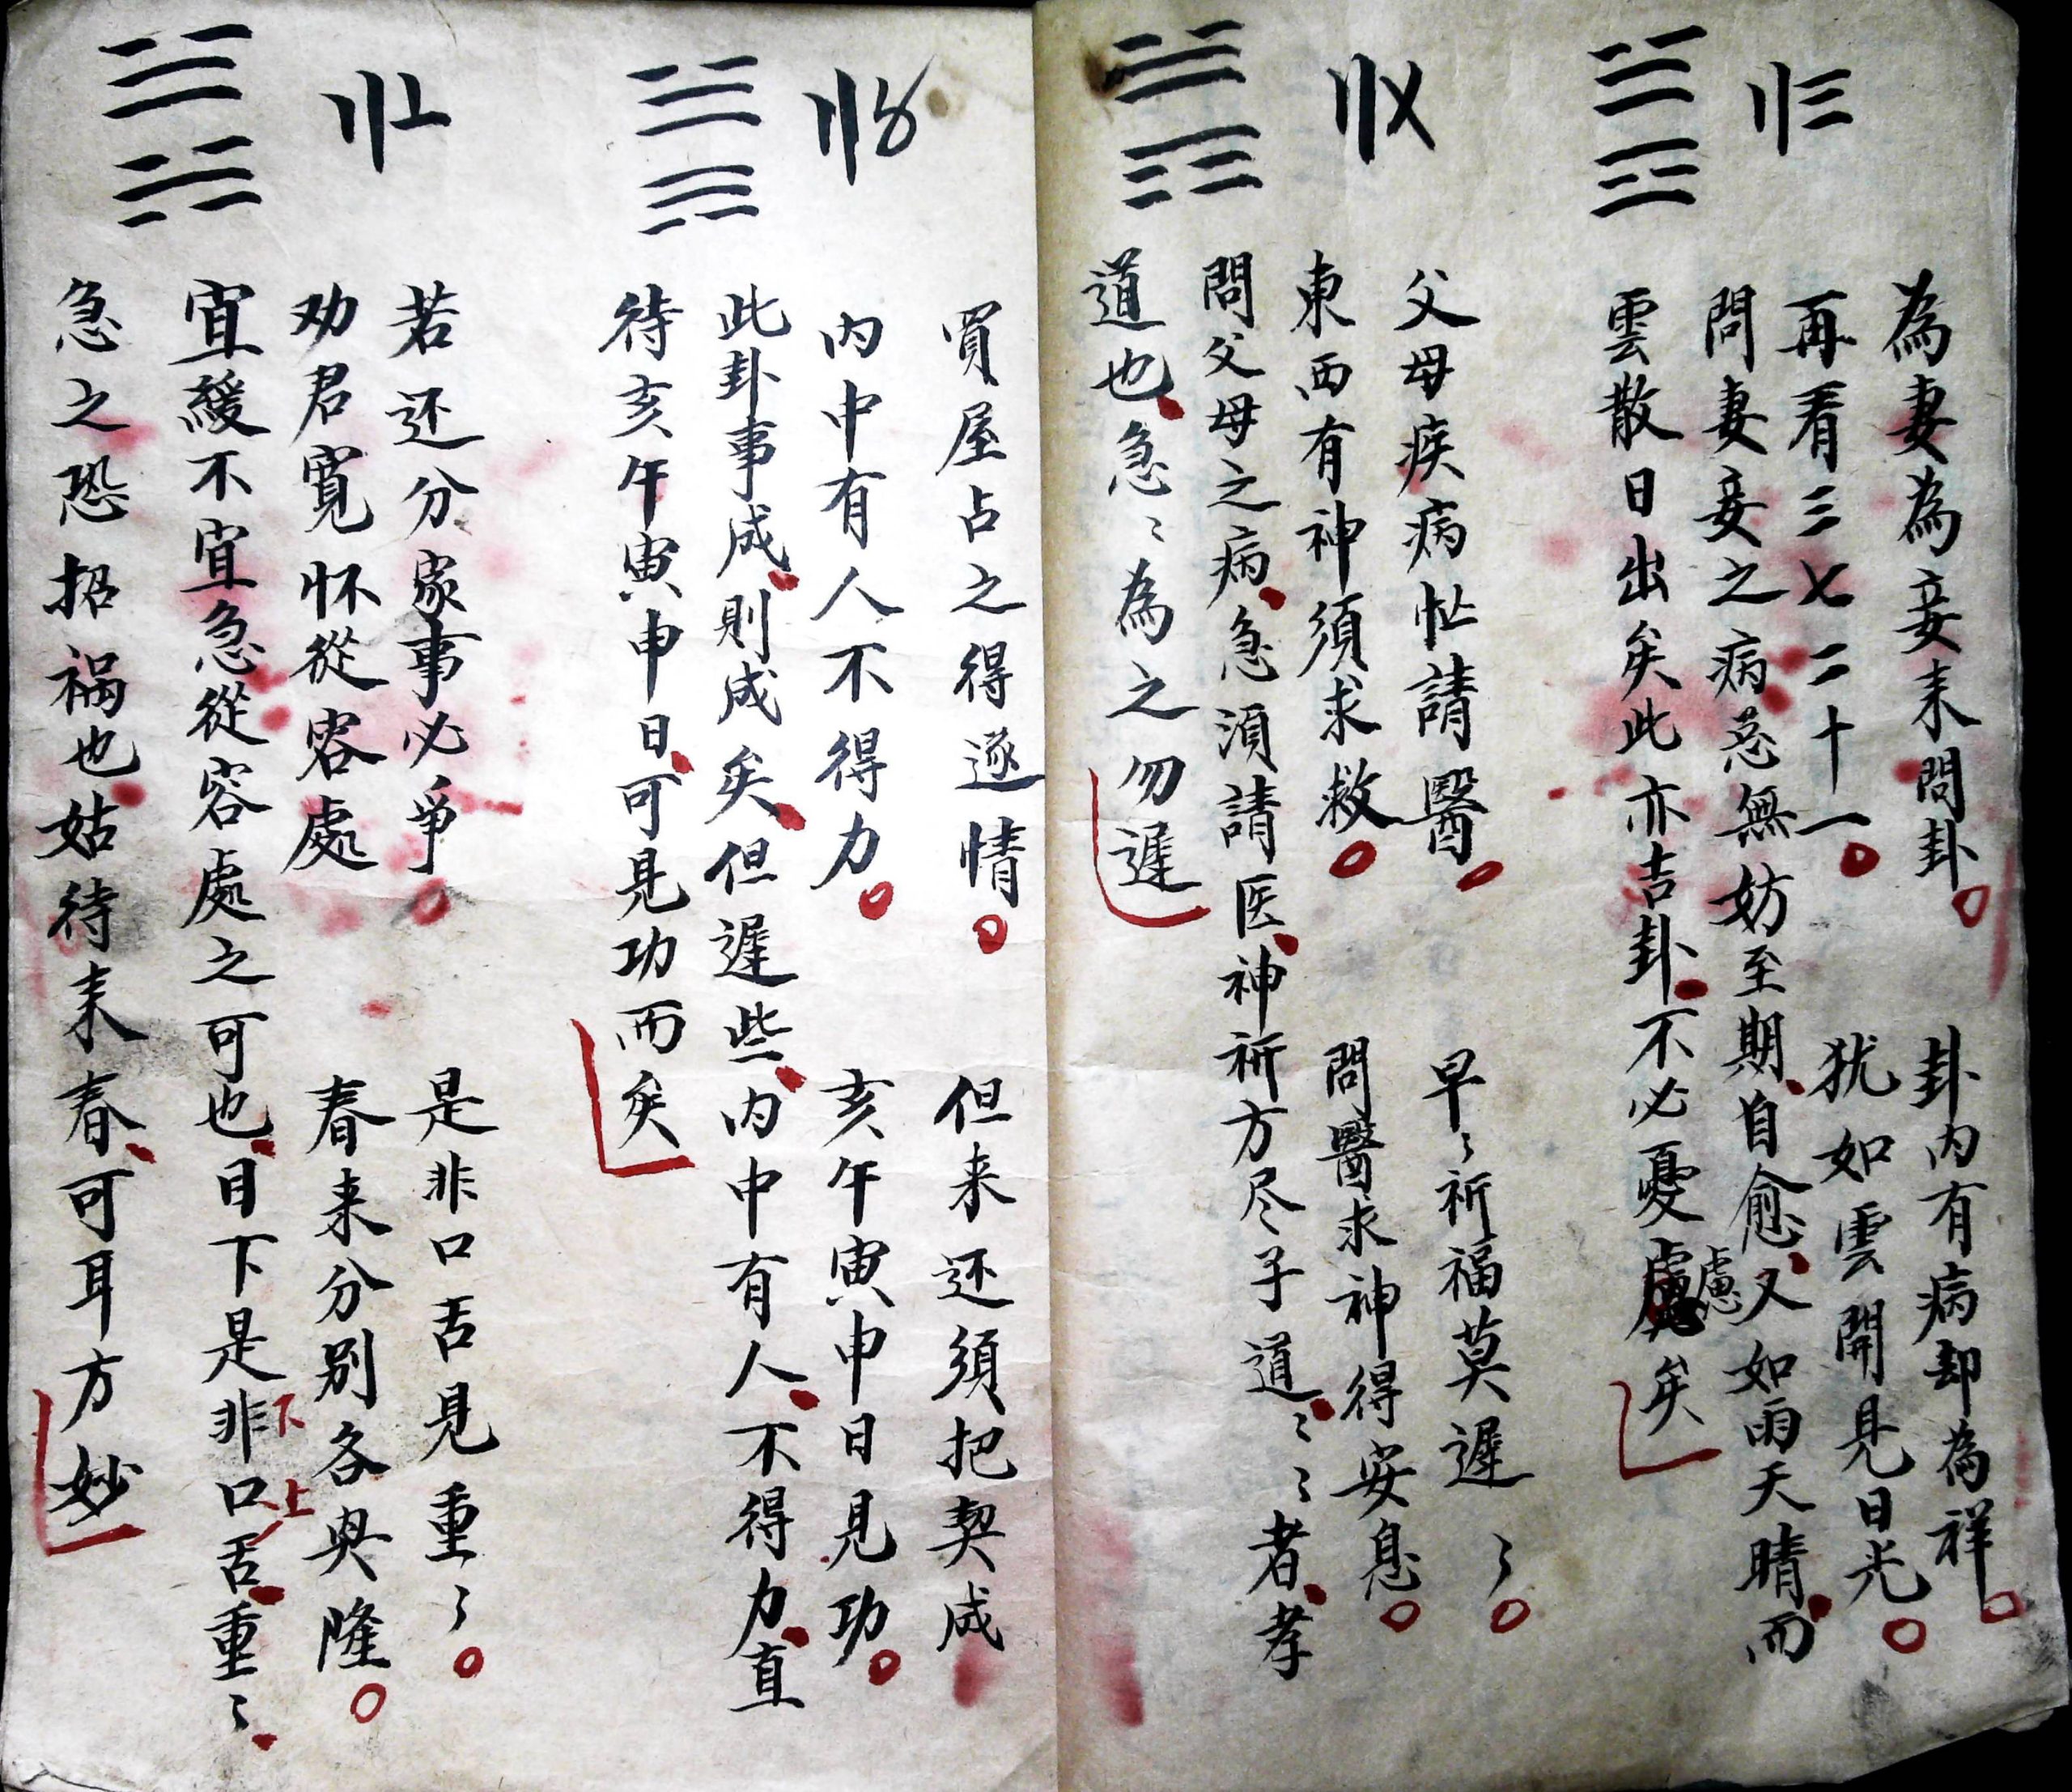 〢三
為妻為妾来問卦 卦内有病却為祥
再看三七二十一 犹如雲開見日光
問妻妾之病恙無妨至期自愈又如雨天晴而
雲散日出矣此亦吉卦不必憂慮矣
慮
〢〤
父母疾病忙請醫 早〻祈福莫遲〻
東西有神須求救 問醫求神得安息
問父母之病急須請医神祈方尽子道〻〻者孝
道也急〻為之勿遲
〢〥
買屋占之得遂情 但来还須把契成
内中有人不得力 亥午寅申日見功
此卦事成則成矣但遲些内中有人不得力直
待亥午寅申日可見功而矣
〢〦
若还分家事必爭 是非口舌見重〻
劝君寬怀從容處 春来分别各興隆
宜緩不宜急從容處之可也目下是非口舌重〻
下
上
急之恐招禍也姑待来春可耳方妙